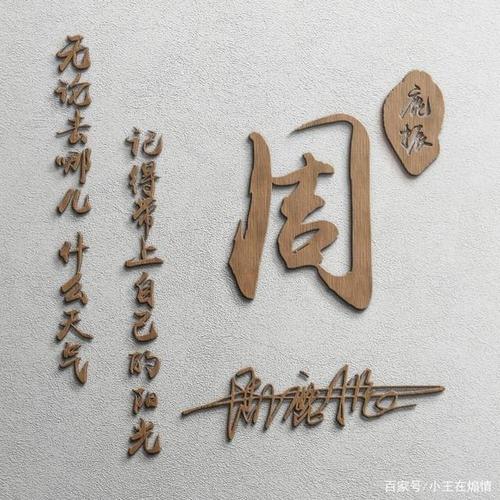 无论去哪儿 什么天气
记得带上自己的阳光
周
鹿振
百家号/小王在煽情